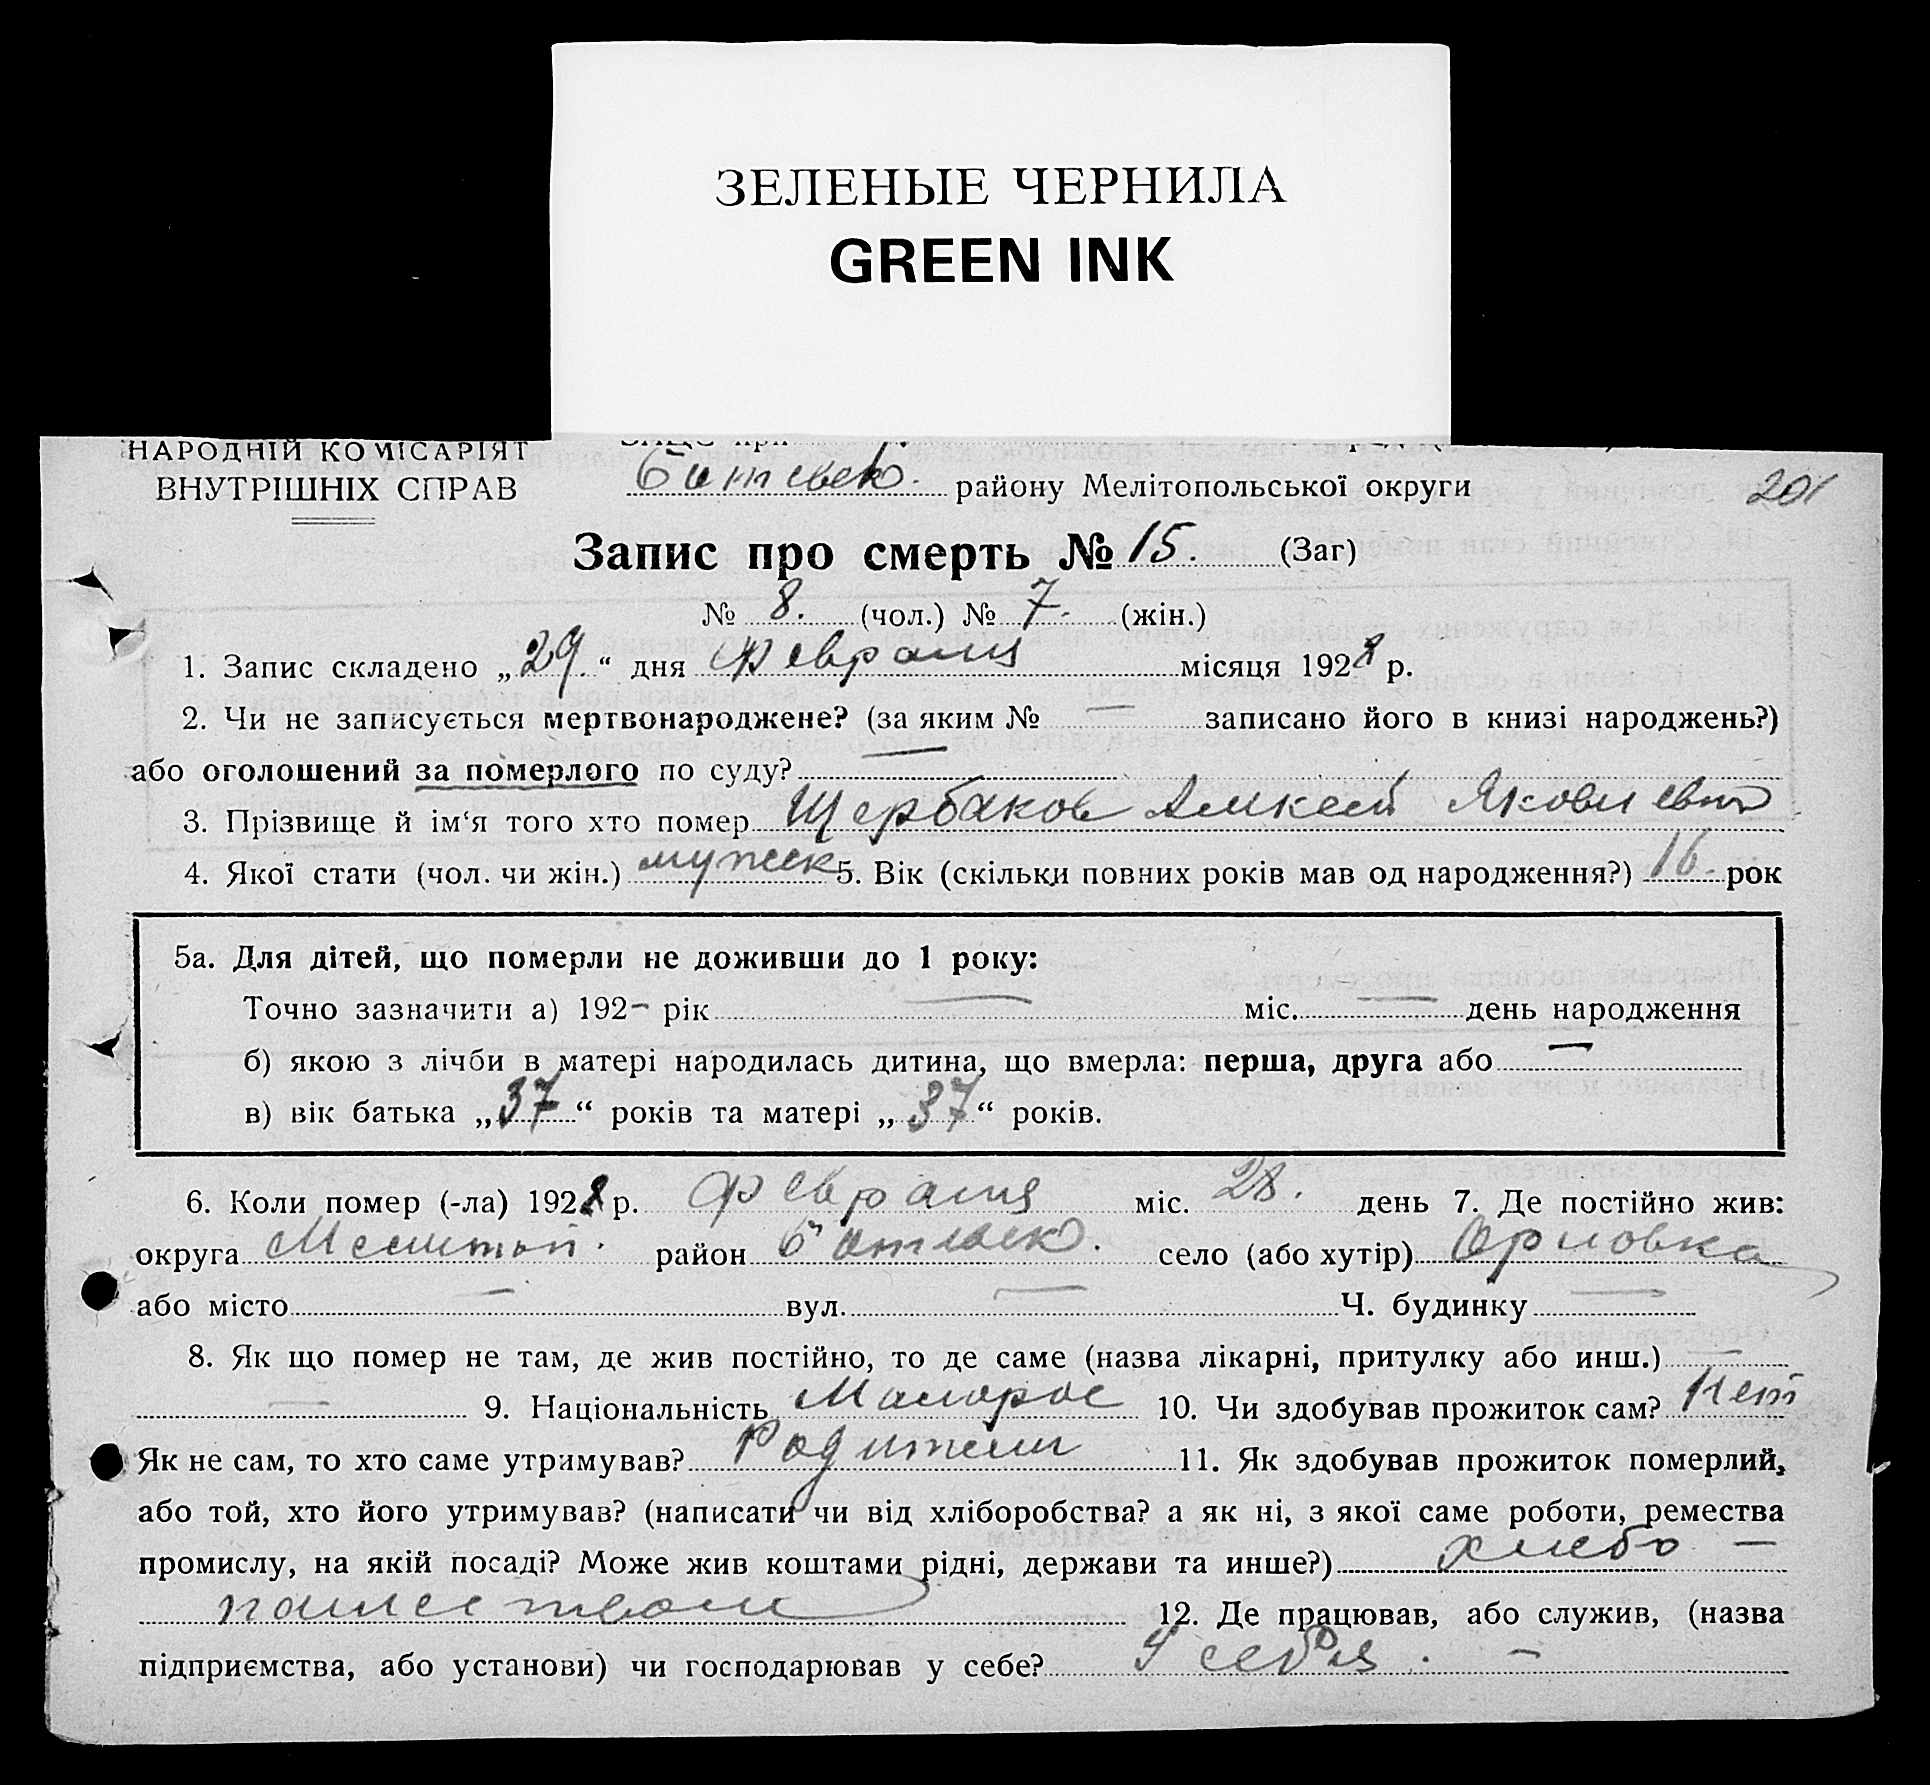 ЗЕЛЕНЫЕ ЧЕРНИЛА
GREEN INK
НАРОДНІЙ КОМІСАРІЯТ
ВНУТРІШНІХ СПРАВ
району Мелітопольської округи
201
Запис про смерть № 15. (Заг)
№ 8. (чол.) № 7. (жін.)
1. Запис складено „29.“ дня Февраля місяця 1928 р.
2. Чи не записується мертвонароджене? (за яким № — записано його в книзі народжень?)
або оголошений за померлого по суду? —
3. Прізвище й ім‘я того хто помер Щербаков Алексей Яковлевич
4. Якої стати (чол. чи жін.) мужск 5. Вік (скільки повних років мав од народження?) 16. рок
5а. Для дітей, що померли не доживши до 1 року:
Точно зазначити а) 192– рік — міс. — день народження
б) якою з лічби в матері народилась дитина, що вмерла: перша, друга або —
в) вік батька „37“ років та матері „37“ років.
6. Коли помер (-ла) 1928 р. Февраля міс. 28. день 7. Де постійно жив:
округа Мелитоп. район село (або хутір) Орловка
або місто — вул. — Ч. будинку —
8. Як що помер не там, де жив постійно, то де саме (назва лікарні, притулку або инш.) —
— 9. Національність Малорос 10. Чи здобував прожиток сам? Нет
Як не сам, то хто саме утримував? Родители 11. Як здобував прожиток померлий,
або той, хто його утримував? (написати чи від хліборобства? а як ні, з якої саме роботи, ремества
промислу, на якій посаді? Може жив коштами рідні, держави та инше?) хлебо —
пашеством 12. Де працював, або служив, (назва
підприємства, або установи) чи господарював у себе? У себя. —